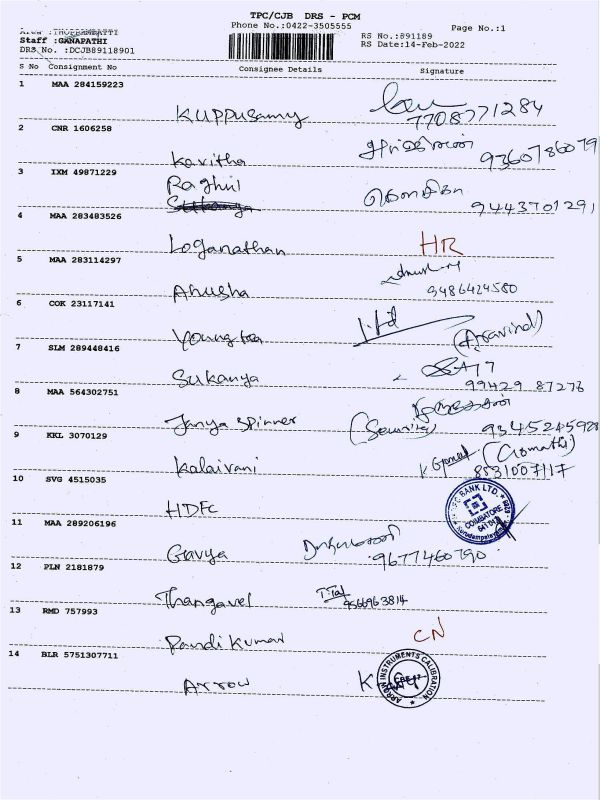 TPC/CJB DRS - PCM
Phone No.:0422-3505555
Page No.:1
Area :THOPPAMPATTI
Staff :GANAPATHI
DRS No. :DCJB89118901
RS No.:891189
RS Date:14-Feb-2022
S No Consignment No Consignee Details Signature
1 MAA 284159223
Kuppusamy 7708771284
2 CNR 1606258
Kavitha 9360786079
3 IXM 49871229
Raghul
கௌசிகா 9443701291
4 MAA 283483526
Loganathan HR
5 MAA 283114297
Anusha 9486424580
6 COK 23117141
(Aravind)
7 SLM 289448416
Sukanya 99429 87278
8 MAA 564302751
Janya Spinner (Security) 9345245928
9 KKL 3070129
Kalaivani K Gomathi (Gomathi)
8531007117
10 SVG 4515035
HDFC
BANK LTD. COIMBATORE
11 MAA 289206196
Gavya 9677460790
12 PLN 2181879
Thangavel 9566963814
13 RMD 757993
Pandi Kumar CN
14 BLR 5751307711
Arrow
ARROW INSTRUMENTS CALIBRATION